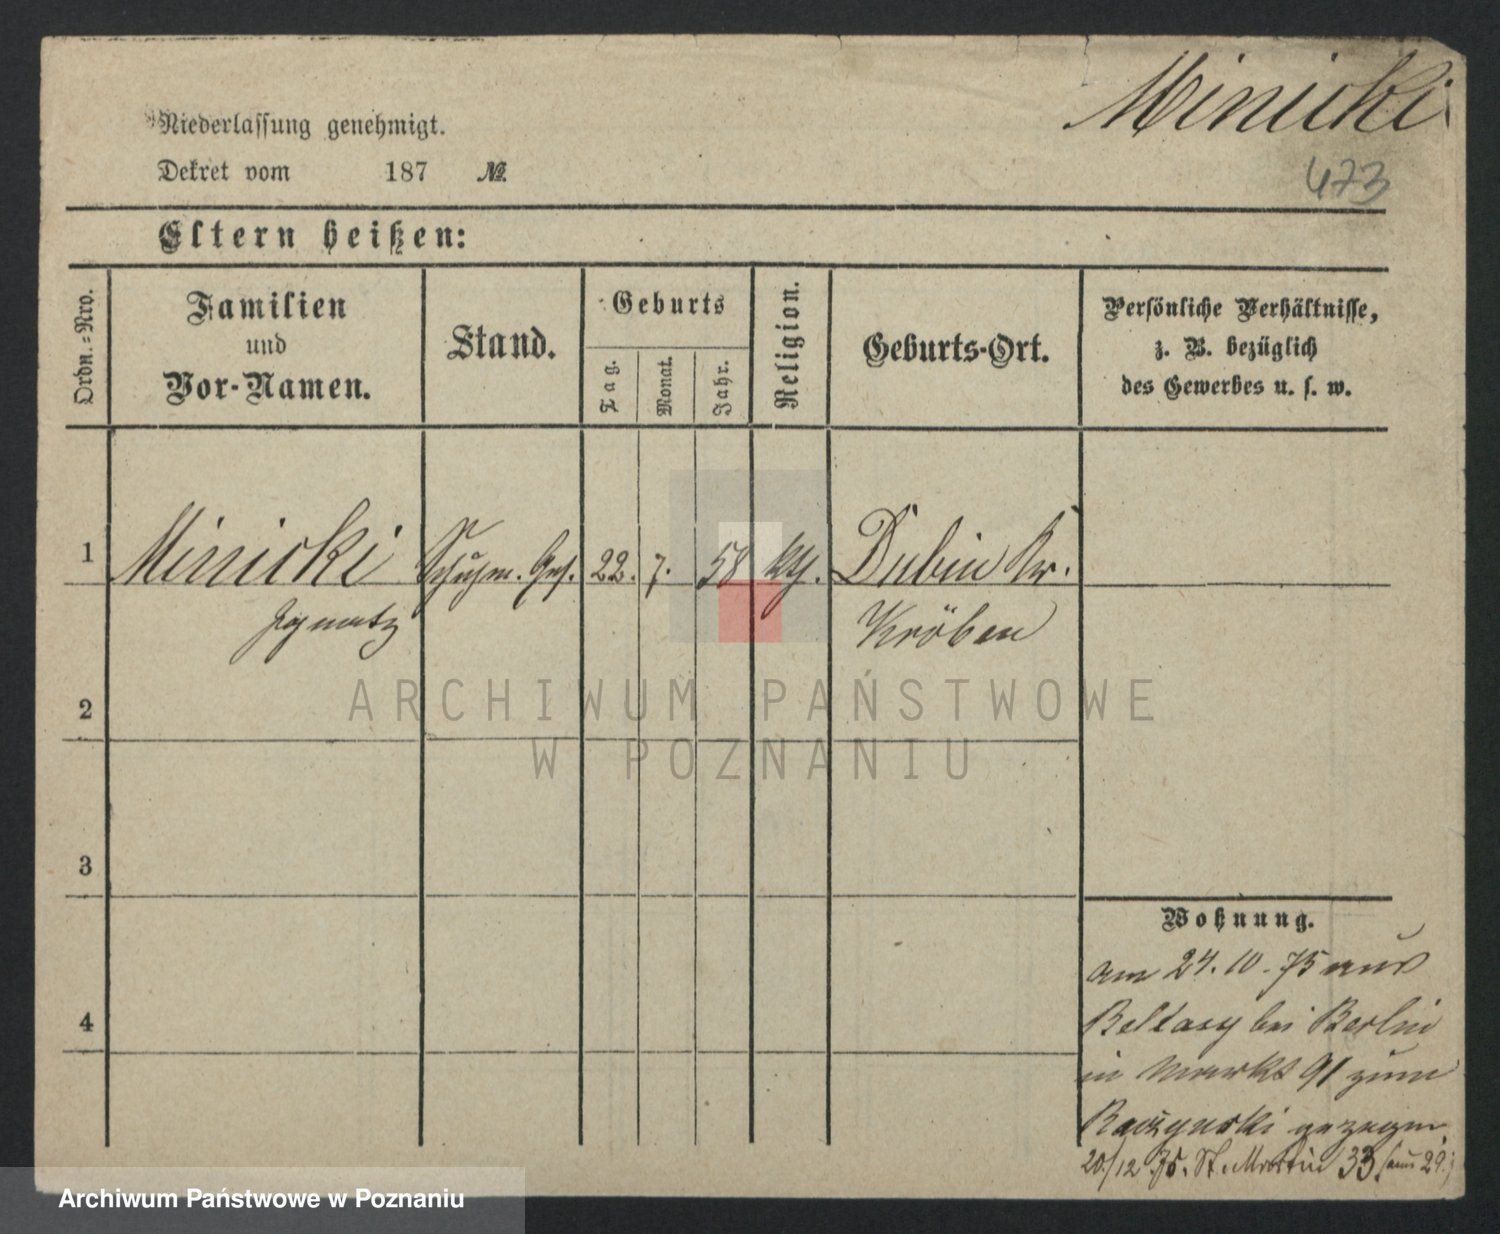 Minicki
Niederlassung genehmigt.
Dekret vom 187 №
473
Eltern heißen:
Ordn.-Nro.
Familien
und
Vor-Namen.
Stand.
Geburts
Tag.
Monat.
Jahr.
Religion.
Geburts-Ort.
Persönliche Verhältnisse,
z. B. bezüglich
des Gewerbes u. s. w.
1 Minicki Schuhm. Ges. 22. 7. 58 kth. Dubin Kr.
Ignatz Kröben
2
3
4
Wohnung.
am 24.10.75 aus
bei Berlin
in Markt 91 zum
gezogen.
20/12 75. St. Martin 33 (aus 29.)
ARCHIWUM PAŃSTWOWE
W POZNANIU
Archiwum Państwowe w Poznaniu